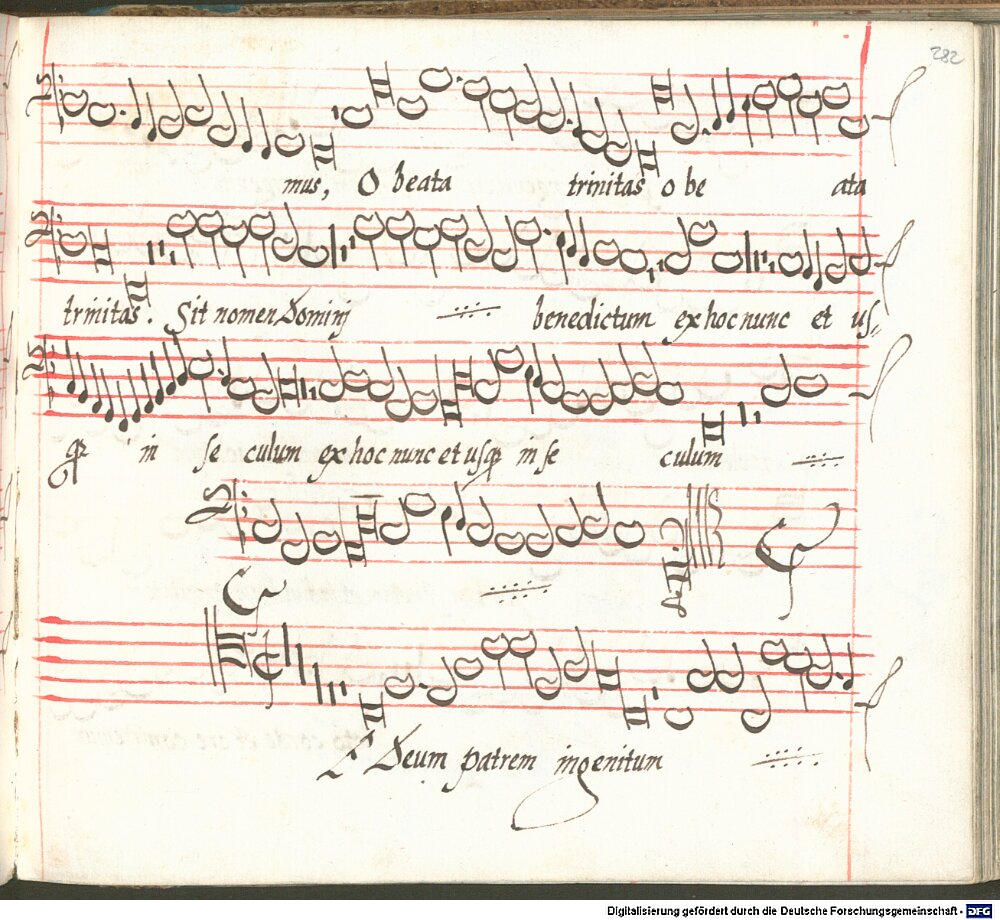 282
mus, O beata trinitas o be ata
trinitas. Sit nomen Dominj benedictum ex hoc nunc et us,,
in se culum ex hoc nunc et usq in se culum
Te Deum patrem ingenitum
Digitalisierung gefördert durch die Deutsche Forschungsgemeinschaft - DFG